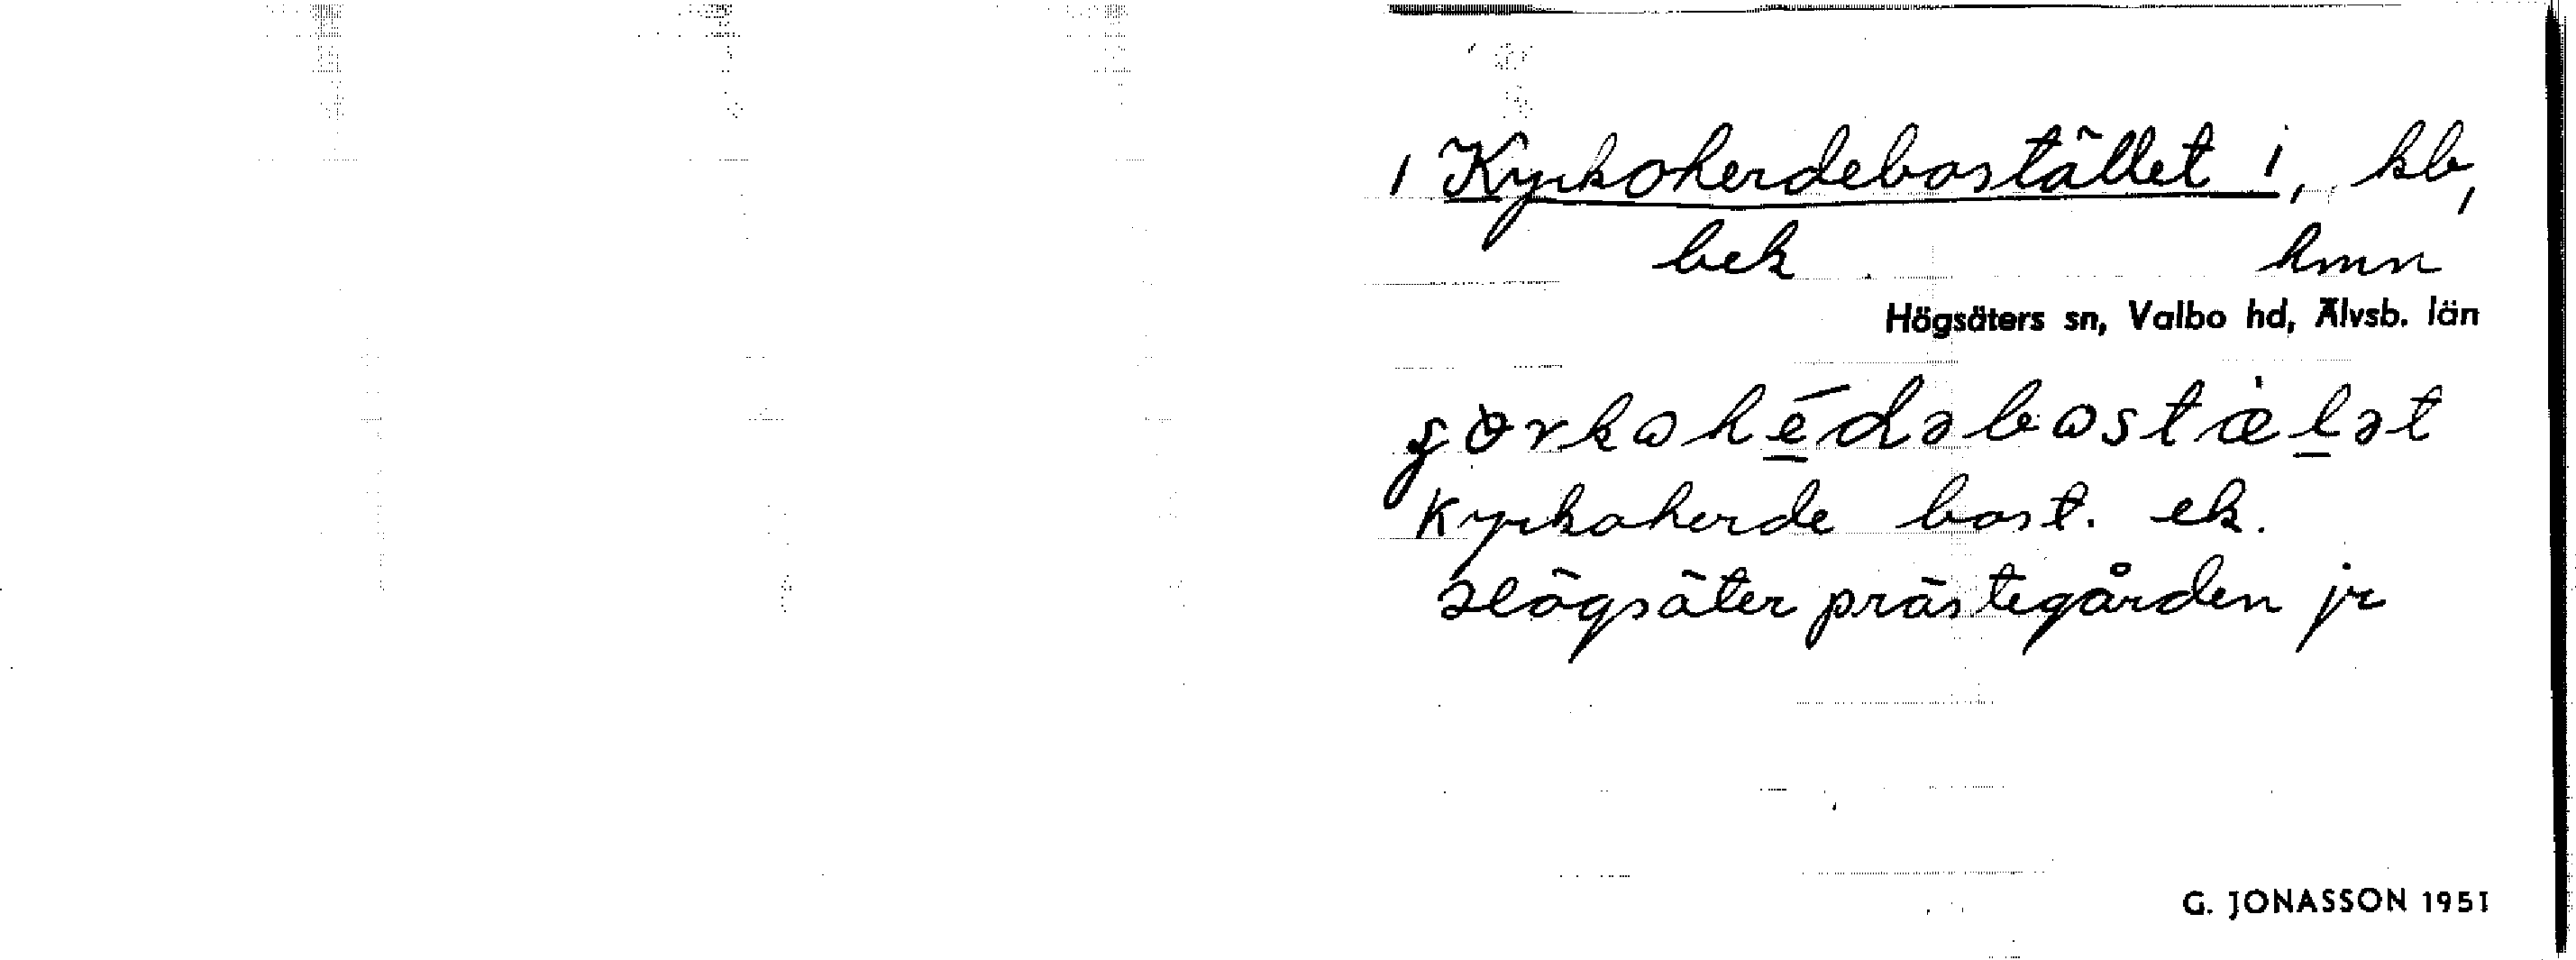 / Kyrkoherdebostället /, kb,
bek hmn
Högsäters sn, Valbo hd, Älvsb. län
Kyrkoherde bost. ek.
Högsäter prästegården jr
G. JONASSON 1951